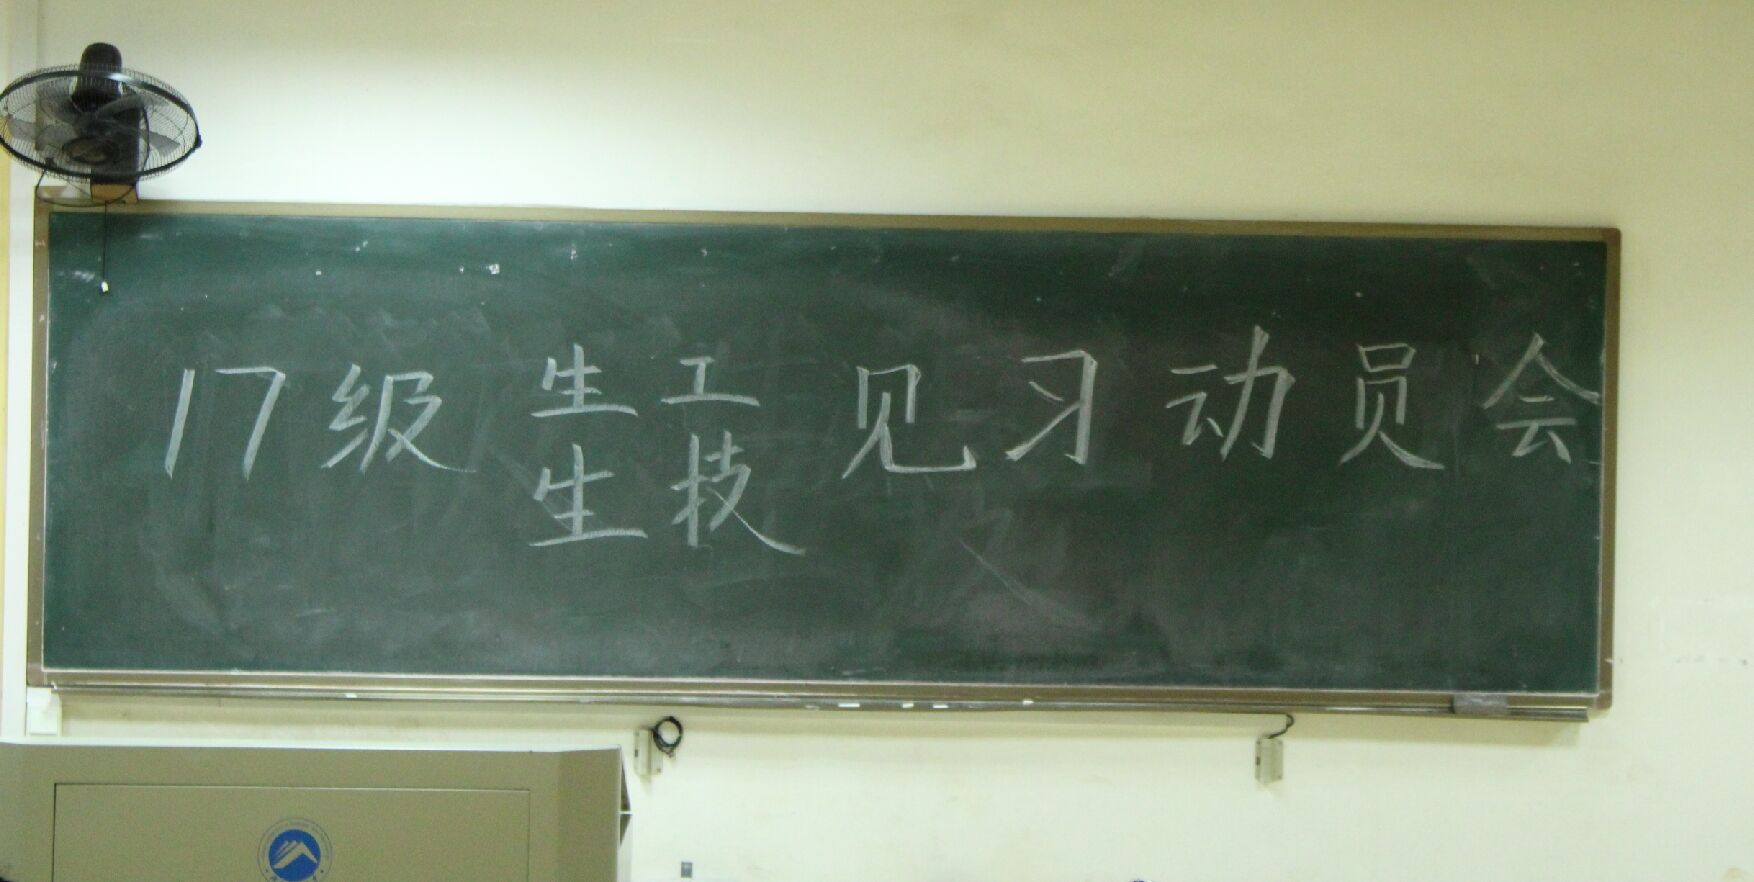 17级 生工 见习动员会
生技